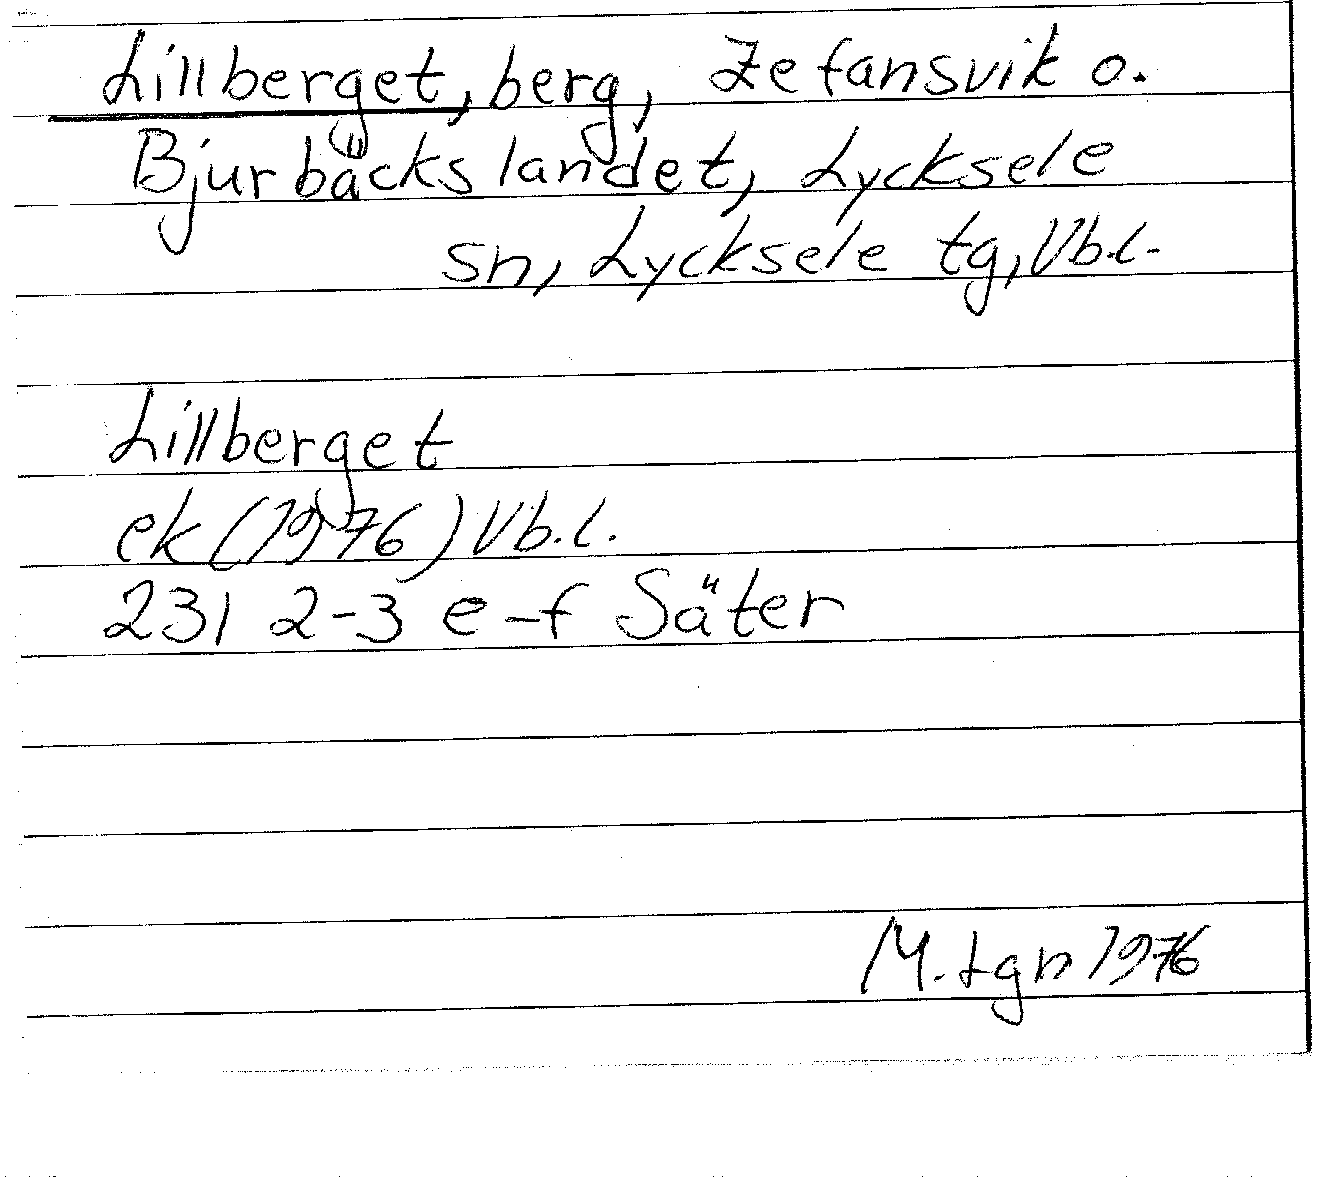 Lillberget, berg, Zefansvik o.
Bjurbäckslandet, Lycksele
sn, Lycksele tg, Vb.l.
Lillberget
ek (1976) Vb.l.
231 2-3 e-f Säter
M. Lgn 1976